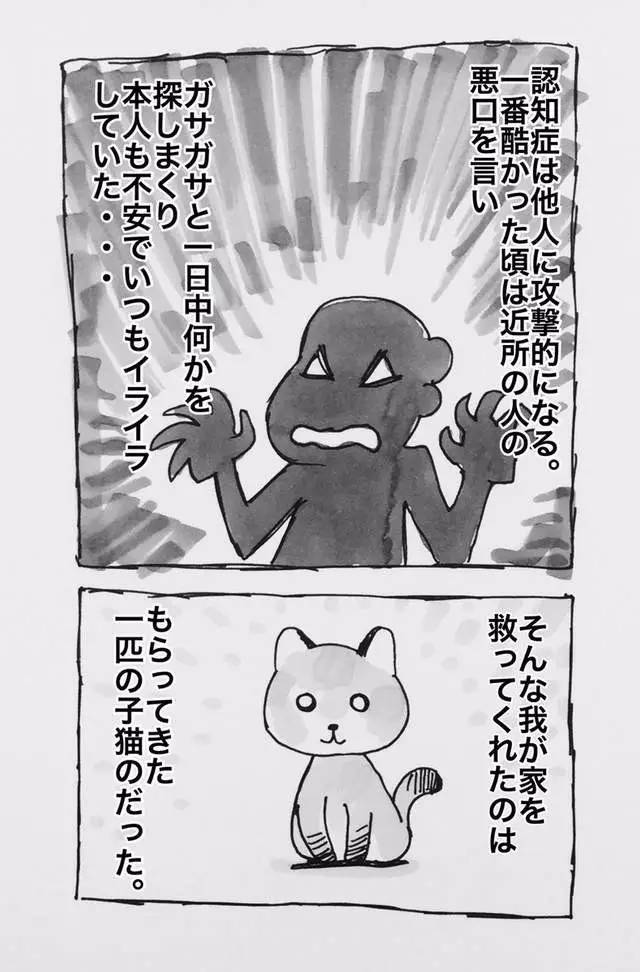 認知症は他人に攻撃的になる。
一番酷かった頃は近所の人の
悪口を言い
ガサガサと一日中何かを
探しまくり
本人も不安でいつもイライラ
していた・・・
そんな我が家を
救ってくれたのは
もらってきた
一匹の子猫のだった。